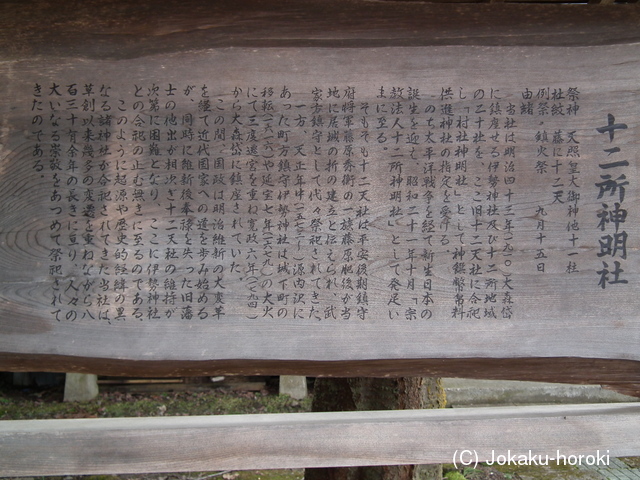 十二所神明社
祭神　天照皇大御神他十一柱
社紋　藤に十二天
例祭・鎮火祭　九月十五日
由緒
当社は明治四十三年(一九一〇)大森岱
に鎮座せる伊勢神社及び十二所地域
の二十社を、ここ旧十二天社に合祀
し「村社神明社」として神饌幣帛料
供進神社の指定を受ける。
のち太平洋戦争を経て新生日本の
誕生を迎え、昭和二十一年十月「宗
教法人十二所神明社」として発足い
まに至る。
そもそも十二天社は平安後期鎮守
府将軍藤原秀衡の一族藤原肥後が当
地に居城の折の建立と伝えられ、武
家歩鎮守として代々祭祀されてきた。
一方、天正年中(一五七三〜)源内沢に
あった町方鎮守伊勢神社は城下町の
移転(一六一六)や延宝七年(一六七九)の大火
にて三度遷宮を重ね寛政六年(一七九四)
から大森岱に鎮座されていた。
この間、国政は明治維新の大変革
を経て近代国家への道を歩み始める
が、同時に維新後奉禄を失った旧藩
士の他出が相次ぎ十二天社の維持が
次第に困難となり、ここに伊勢神社
との合祀の止む無きに至るのである。
このように起源や歴史的経緯の異
なる諸神社が合祀されてきた当社は、
草創以来幾多の変遷を重ねながら八
百三十有余年の長きに亘り、人々の
大いなる崇敬をあつめて祭祀されて
きたのである。
(C) Jokaku-horoki